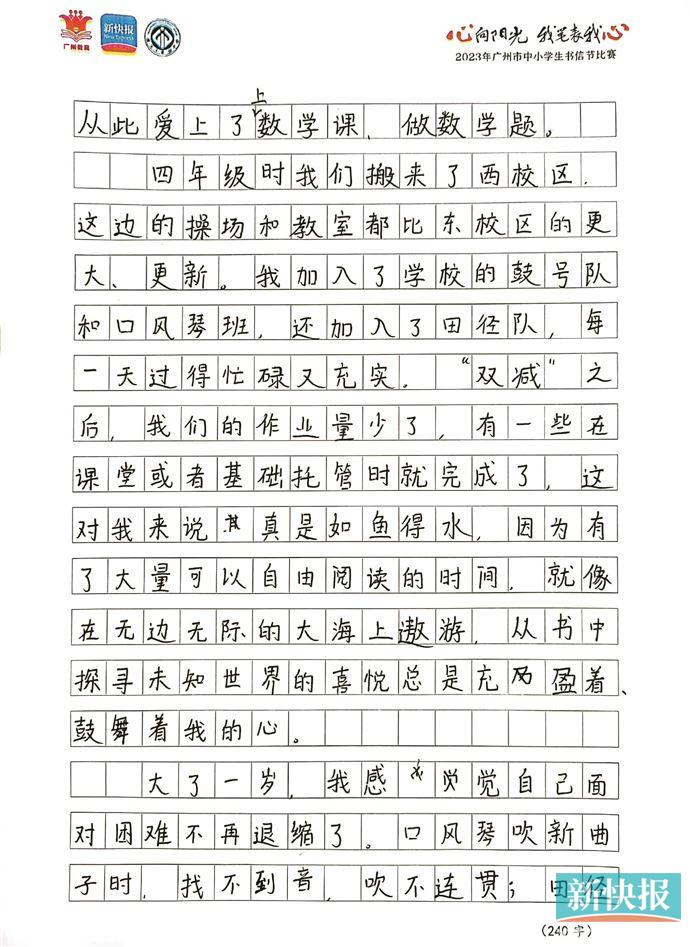 广州教育
新快报
New Express
心向阳光 我笔表我心
2023年广州市中小学生书信节比赛
上
从此爱上了数学课、做数学题。
四年级时我们搬来了西校区.
这边的操场和教室都比东校区的更
大、更新。我加入了学校的鼓号队
和口风琴班,还加入了田径队,每
一天过得忙碌又充实."双减"之
后,我们的作业量少了,有一些在
课堂或者基础托管时就完成了,这
对我来说真是如鱼得水,因为有
了大量可以自由阅读的时间,就像
在无边无际的大海上遨游,从书中
探寻未知世界的喜悦总是充盈着、
鼓舞着我的心。
大了一岁,我感觉自己面
对困难不再退缩了。口风琴吹新曲
子时,找不到音,吹不连贯;田径
新快报
(240字)